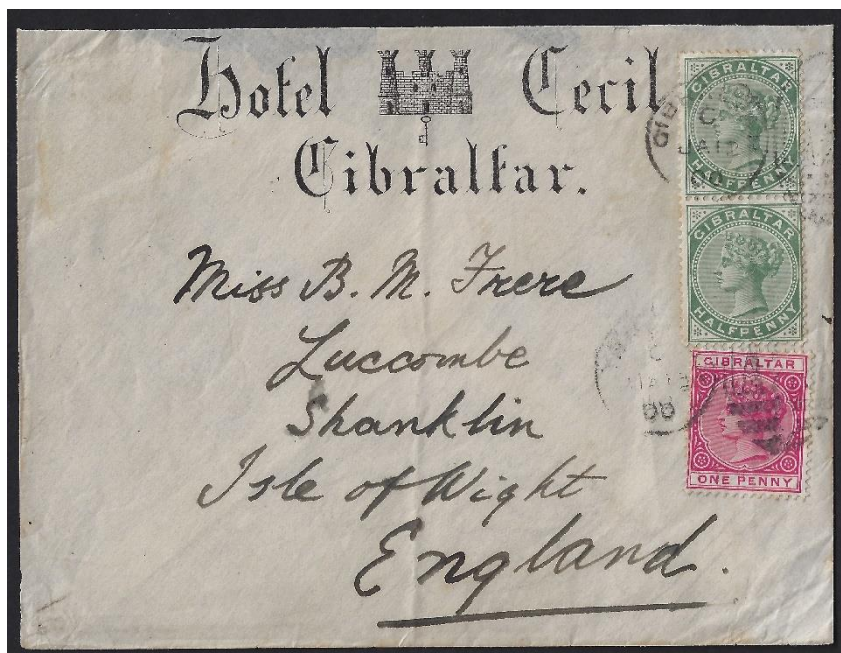 Hotel Cecil
Gibraltar.
GIBRALTAR
HALFPENNY
GIBRALTAR
HALFPENNY
GIBRALTAR
ONE PENNY
Miss B. M. Frere
Luccombe
Shanklin
Isle of Wight
England.